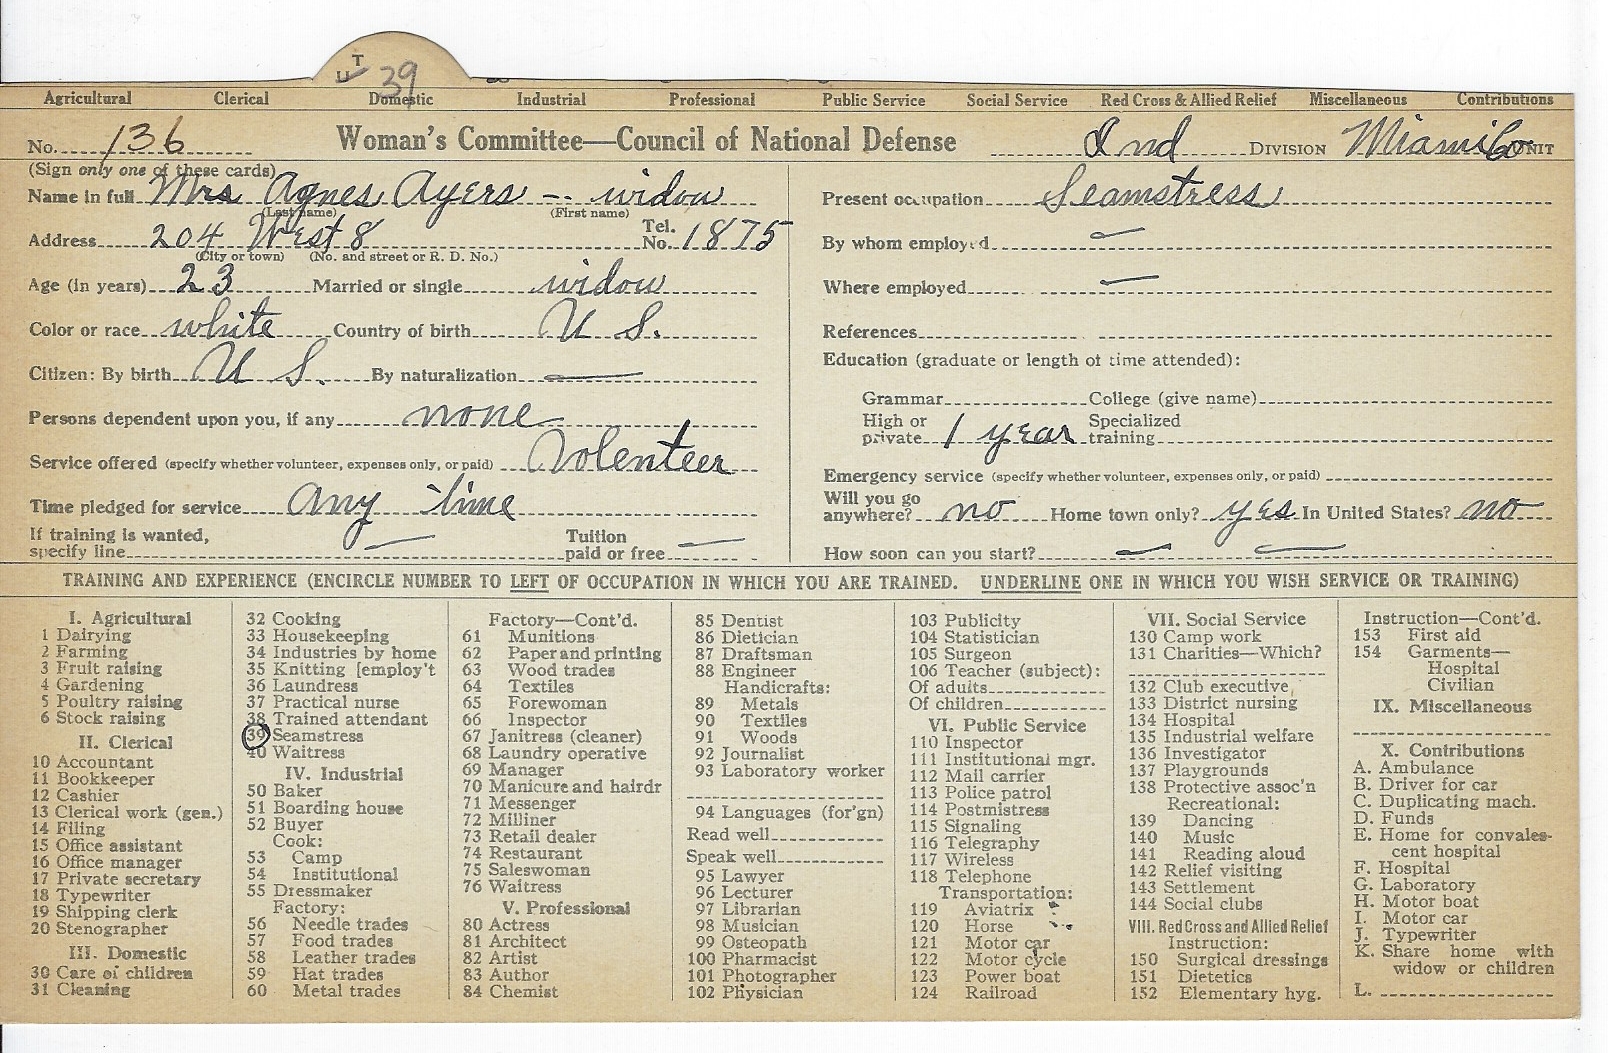 U T 39
Agricultural Clerical Domestic Industrial Professional Public Service Social Service Red Cross & Allied Relief Miscellaneous Contributions
No. 136 Woman's Committee—Council of National Defense Ind DIVISION Miami Co UNIT
(Sign only one of these cards)
Name in full Mrs Agnes Ayers -- widow
(Last name) (First name)
Address 204 West 8 Tel. No. 1875
(City or town) (No. and street or R. D. No.)
Age (in years) 23 Married or single widow
Color or race white Country of birth U S.
Citizen: By birth U S. By naturalization —
Persons dependent upon you, if any none
Service offered (specify whether volunteer, expenses only, or paid) Volenteer
Time pledged for service any time
If training is wanted, specify line — Tuition paid or free —
Present occupation Seamstress
By whom employed —
Where employed —
References
Education (graduate or length of time attended):
Grammar College (give name)
High or private 1 year Specialized training
Emergency service (specify whether volunteer, expenses only, or paid)
Will you go anywhere? no Home town only? yes In United States? no
How soon can you start? — —
TRAINING AND EXPERIENCE (ENCIRCLE NUMBER TO LEFT OF OCCUPATION IN WHICH YOU ARE TRAINED. UNDERLINE ONE IN WHICH YOU WISH SERVICE OR TRAINING)
I. Agricultural
1 Dairying
2 Farming
3 Fruit raising
4 Gardening
5 Poultry raising
6 Stock raising
II. Clerical
10 Accountant
11 Bookkeeper
12 Cashier
13 Clerical work (gen.)
14 Filing
15 Office assistant
16 Office manager
17 Private secretary
18 Typewriter
19 Shipping clerk
20 Stenographer
III. Domestic
30 Care of children
31 Cleaning
32 Cooking
33 Housekeeping
34 Industries by home
35 Knitting [employ't
36 Laundress
37 Practical nurse
38 Trained attendant
39 Seamstress
40 Waitress
IV. Industrial
50 Baker
51 Boarding house
52 Buyer
Cook:
53 Camp
54 Institutional
55 Dressmaker
Factory:
56 Needle trades
57 Food trades
58 Leather trades
59 Hat trades
60 Metal trades
Factory—Cont'd.
61 Munitions
62 Paper and printing
63 Wood trades
64 Textiles
65 Forewoman
66 Inspector
67 Janitress (cleaner)
68 Laundry operative
69 Manager
70 Manicure and hairdr
71 Messenger
72 Milliner
73 Retail dealer
74 Restaurant
75 Saleswoman
76 Waitress
V. Professional
80 Actress
81 Architect
82 Artist
83 Author
84 Chemist
85 Dentist
86 Dietician
87 Draftsman
88 Engineer
Handicrafts:
89 Metals
90 Textiles
91 Woods
92 Journalist
93 Laboratory worker
94 Languages (for'gn)
Read well
Speak well
95 Lawyer
96 Lecturer
97 Librarian
98 Musician
99 Osteopath
100 Pharmacist
101 Photographer
102 Physician
103 Publicity
104 Statistician
105 Surgeon
106 Teacher (subject):
Of adults
Of children
VI. Public Service
110 Inspector
111 Institutional mgr.
112 Mail carrier
113 Police patrol
114 Postmistress
115 Signaling
116 Telegraphy
117 Wireless
118 Telephone
Transportation:
119 Aviatrix
120 Horse
121 Motor car
122 Motor cycle
123 Power boat
124 Railroad
VII. Social Service
130 Camp work
131 Charities—Which?
132 Club executive
133 District nursing
134 Hospital
135 Industrial welfare
136 Investigator
137 Playgrounds
138 Protective assoc'n
Recreational:
139 Dancing
140 Music
141 Reading aloud
142 Relief visiting
143 Settlement
144 Social clubs
VIII. Red Cross and Allied Relief
Instruction:
150 Surgical dressings
151 Dietetics
152 Elementary hyg.
Instruction—Cont'd.
153 First aid
154 Garments—
Hospital
Civilian
IX. Miscellaneous
X. Contributions
A. Ambulance
B. Driver for car
C. Duplicating mach.
D. Funds
E. Home for convales-
cent hospital
F. Hospital
G. Laboratory
H. Motor boat
I. Motor car
J. Typewriter
K. Share home with
widow or children
L.